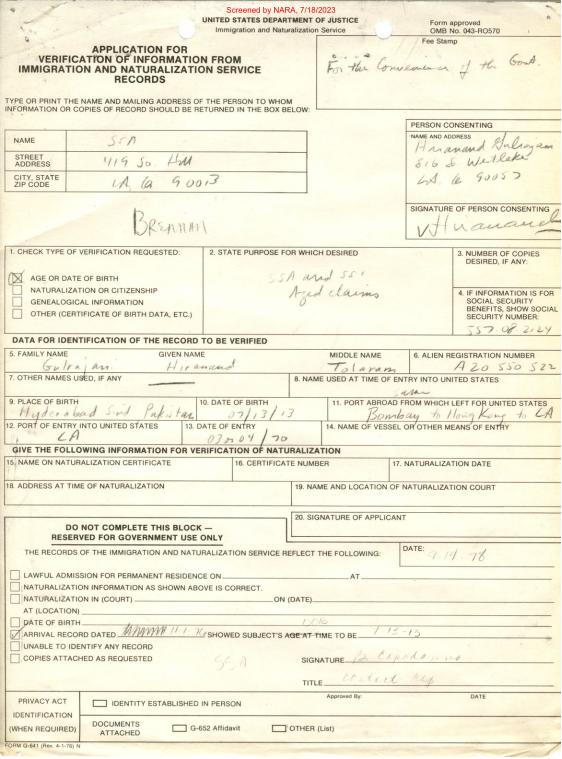 Screened by NARA, 7/18/2023
UNITED STATES DEPARTMENT OF JUSTICE
Immigration and Naturalization Service
Form approved
OMB No. 043-RO570
Fee Stamp
For the Convenience of the Govt.
APPLICATION FOR
VERIFICATION OF INFORMATION FROM
IMMIGRATION AND NATURALIZATION SERVICE
RECORDS
TYPE OR PRINT THE NAME AND MAILING ADDRESS OF THE PERSON TO WHOM
INFORMATION OR COPIES OF RECORD SHOULD BE RETURNED IN THE BOX BELOW:
NAME SSA
STREET ADDRESS 419 So. Hill
CITY, STATE ZIP CODE LA, Ca 90013
PERSON CONSENTING
NAME AND ADDRESS
Hiranand Gulrajani
816 S Westlake
LA. Ca 90057
SIGNATURE OF PERSON CONSENTING
Hiranand
BRENNAN
1. CHECK TYPE OF VERIFICATION REQUESTED:
AGE OR DATE OF BIRTH
NATURALIZATION OR CITIZENSHIP
GENEALOGICAL INFORMATION
OTHER (CERTIFICATE OF BIRTH DATA, ETC.)
2. STATE PURPOSE FOR WHICH DESIRED
SSA and SSI
Aged claims
3. NUMBER OF COPIES DESIRED, IF ANY:
4. IF INFORMATION IS FOR SOCIAL SECURITY BENEFITS, SHOW SOCIAL SECURITY NUMBER:
557 08 2124
DATA FOR IDENTIFICATION OF THE RECORD TO BE VERIFIED
5. FAMILY NAME GIVEN NAME MIDDLE NAME 6. ALIEN REGISTRATION NUMBER
Gulrajani Hiranand Tolaram A20 550 522
7. OTHER NAMES USED, IF ANY 8. NAME USED AT TIME OF ENTRY INTO UNITED STATES
same
9. PLACE OF BIRTH 10. DATE OF BIRTH 11. PORT ABROAD FROM WHICH LEFT FOR UNITED STATES
Hyderabad Sind Pakistan 07/13/13 Bombay to Hong Kong to LA
12. PORT OF ENTRY INTO UNITED STATES 13. DATE OF ENTRY 14. NAME OF VESSEL OR OTHER MEANS OF ENTRY
LA 04/70
GIVE THE FOLLOWING INFORMATION FOR VERIFICATION OF NATURALIZATION
15. NAME ON NATURALIZATION CERTIFICATE 16. CERTIFICATE NUMBER 17. NATURALIZATION DATE
18. ADDRESS AT TIME OF NATURALIZATION 19. NAME AND LOCATION OF NATURALIZATION COURT
20. SIGNATURE OF APPLICANT
DO NOT COMPLETE THIS BLOCK —
RESERVED FOR GOVERNMENT USE ONLY
THE RECORDS OF THE IMMIGRATION AND NATURALIZATION SERVICE REFLECT THE FOLLOWING:
DATE:
LAWFUL ADMISSION FOR PERMANENT RESIDENCE ON AT
NATURALIZATION INFORMATION AS SHOWN ABOVE IS CORRECT.
NATURALIZATION IN (COURT) ON (DATE)
AT (LOCATION)
DATE OF BIRTH
ARRIVAL RECORD DATED SHOWED SUBJECT'S AGE AT TIME TO BE 7-13-13
UNABLE TO IDENTIFY ANY RECORD
COPIES ATTACHED AS REQUESTED SSA
SIGNATURE
TITLE Contact Rep
PRIVACY ACT
IDENTIFICATION
(WHEN REQUIRED)
IDENTITY ESTABLISHED IN PERSON
Approved By: DATE
DOCUMENTS ATTACHED
G-652 Affidavit
OTHER (List)
FORM G-641 (Rev. 4-1-76) N